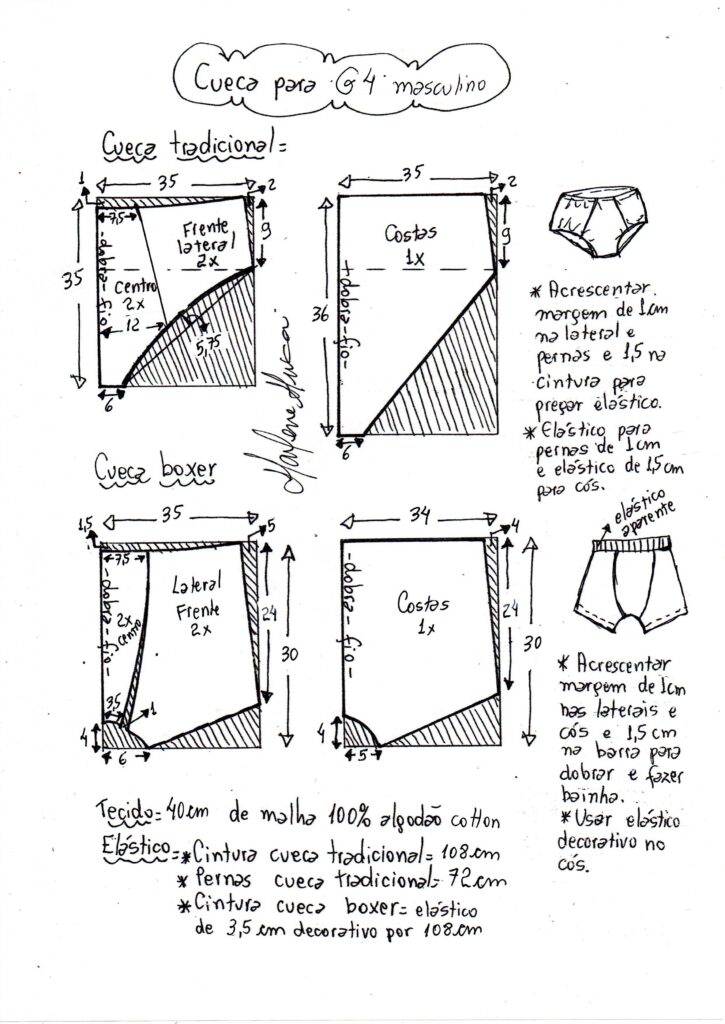 Cueca para G4 masculino
Cueca tradicional=
1
35
2
7,5
35
-dobra-fio-
Frente
lateral
2x
9
Centro
2x
12
5,75
6
35
2
Costas
1x
9
36
+dobra-fio-
6
Marlene Mukai
* Acrescentar
margem de 1cm
na lateral e
pernas e 1,5 na
cintura para
pregar elástico.
* Elástico para
pernas de 1cm
e elástico de 1,5cm
para cós.
Cueca boxer
1,5
35
5
7,5
-dobra-fio-
2x
centro
Lateral
Frente
2x
24
30
3,5
1
4
6
34
4
-dobra-fio-
Costas
1x
24
30
4
5
elástico
aparente
* Acrescentar
margem de 1cm
nas laterais e
cós e 1,5cm
na barra para
dobrar e fazer
bainha.
* Usar elástico
decorativo no
cós.
Tecido=40cm de malha 100% algodão cotton
Elástico=*Cintura cueca tradicional=108cm
* Pernas cueca tradicional=72cm
*Cintura cueca boxer= elástico
de 3,5cm decorativo por 108cm